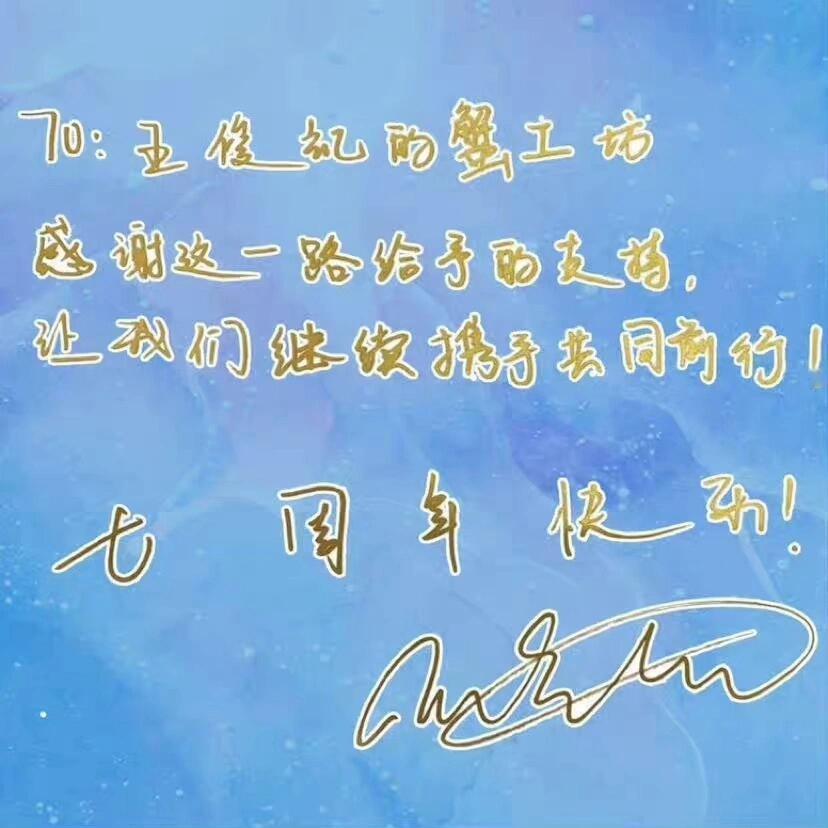 TO:王俊凯的蟹工坊
感谢这一路给予的支持,
让我们继续携手共同前行!
七周年快乐!